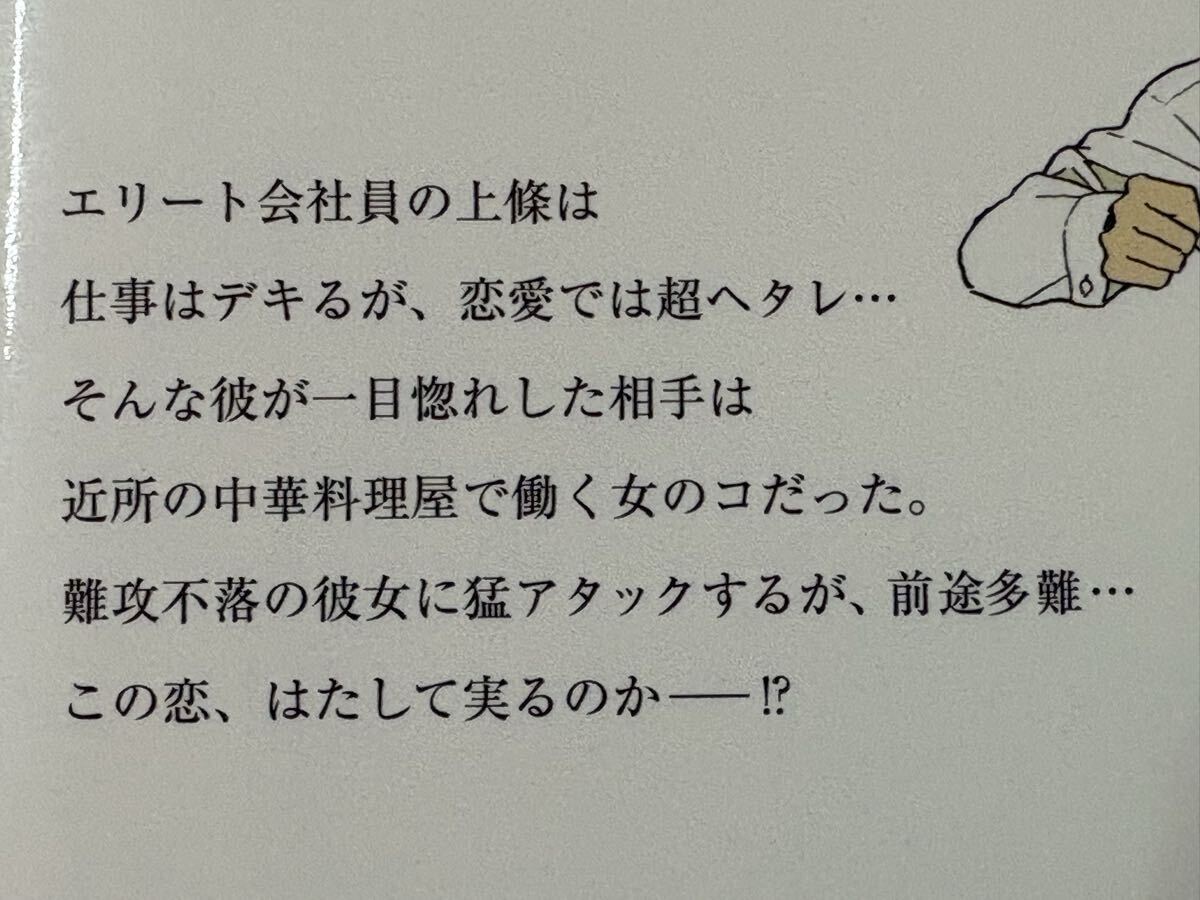 エリート会社員の上條は
仕事はデキるが、恋愛では超ヘタレ…
そんな彼が一目惚れした相手は
近所の中華料理屋で働く女のコだった。
難攻不落の彼女に猛アタックするが、前途多難…
この恋、はたして実るのか──!?